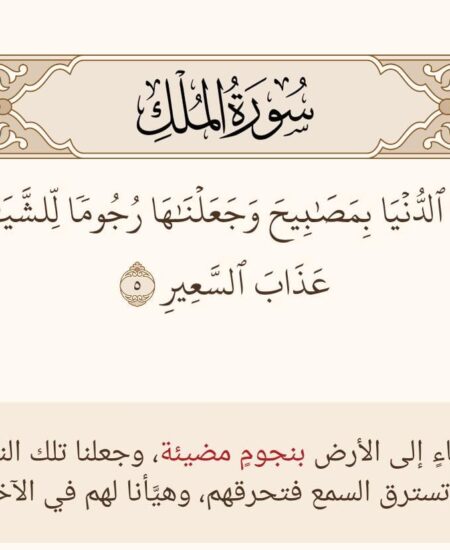 سُورَةُ المُلْكِ
ٱلدُّنْيَا بِمَصَـٰبِيحَ وَجَعَلْنَـٰهَا رُجُومًا لِّلشَّيَـ
عَذَابَ ٱلسَّعِيرِ ٥
اءٍ إلى الأرض بنجومٍ مضيئة، وجعلنا تلك الن
تسترق السمع فتحرقهم، وهيَّأنا لهم في الآخ